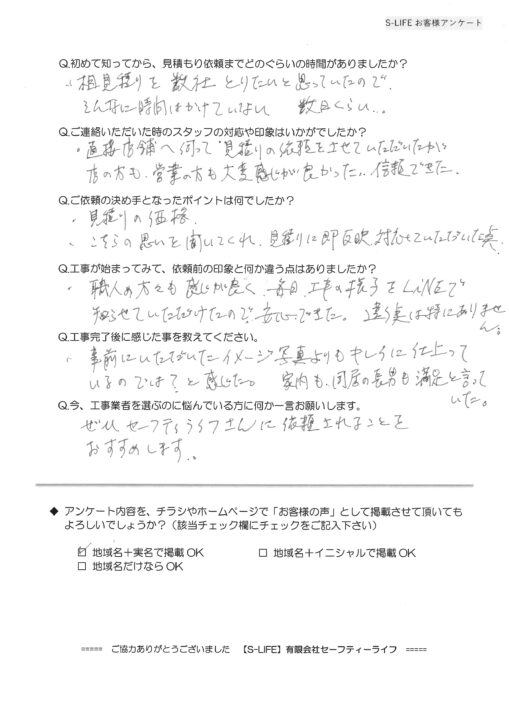 S-LIFE お客様アンケート
Q.初めて知ってから、見積もり依頼までどのぐらいの時間がありましたか？
・相見積りを 数社 とりたいと思っていたので
そんなに時間はかけていない 数日くらい...
Q.ご連絡いただいた時のスタッフの対応や印象はいかがでしたか？
・直接店舗へ伺って 見積りの依頼をさせていただいたが
店の方も、営業の方も大変感じが良かった.. 信頼できた.
Q.ご依頼の決め手となったポイントは何でしたか？
・見積りの価格.
・こちらの思いを聞いてくれ、見積りに即反映、対応していただいた点.
Q.工事が始まってみて、依頼前の印象と何か違う点はありましたか？
・職人の方々も感じが良く、毎日、工事の様子をLiNEで
知らせていただけたので、安心できた。 違う点は特にありませ
ん。
Q.工事完了後に感じた事を教えてください。
・事前にいただいたイメージ写真よりもキレイに仕上って
いるのでは？と感じた。 家内も、同居の長男も満足と言って
いた。
Q.今、工事業者を選ぶのに悩んでいる方に何か一言お願いします。
ぜひ セーフティライフさんに依頼されることを
おすすめします..
◆ アンケート内容を、チラシやホームページで「お客様の声」として掲載させて頂いても
よろしいでしょうか？（該当チェック欄にチェックをご記入下さい）
☑ 地域名＋実名で掲載 OK □ 地域名＋イニシャルで掲載 OK
□ 地域名だけなら OK
===== ご協力ありがとうございました 【S-LIFE】有限会社セーフティーライフ =====